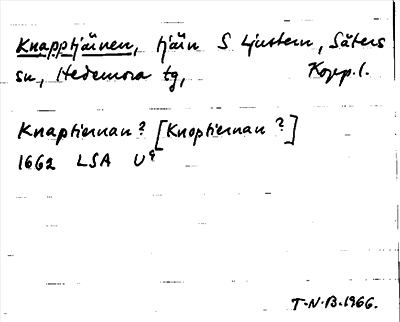 Knapptjärnen, tjärn S Ljustern, Säters
sn, Hedemora tg, Kopp.l.
Knaptiernan? [Knoptiernan?]
1662 LSA U9
T-N.B.1966.